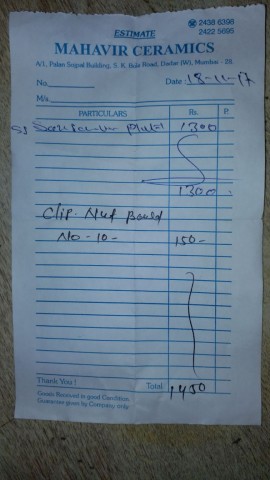 ESTIMATE
☎ 2438 6398
2422 5695
MAHAVIR CERAMICS
A/1, Palan Sojpal Building, S. K. Bole Road, Dadar (W), Mumbai - 28.
No.
Date: 18-11-17
M/s.
PARTICULARS Rs. P.
1300
1300
Clip. Nut Bould
No-10- 150-
Thank You! Total 1450
Goods Received in good Condition.
Guarantee given by Company only